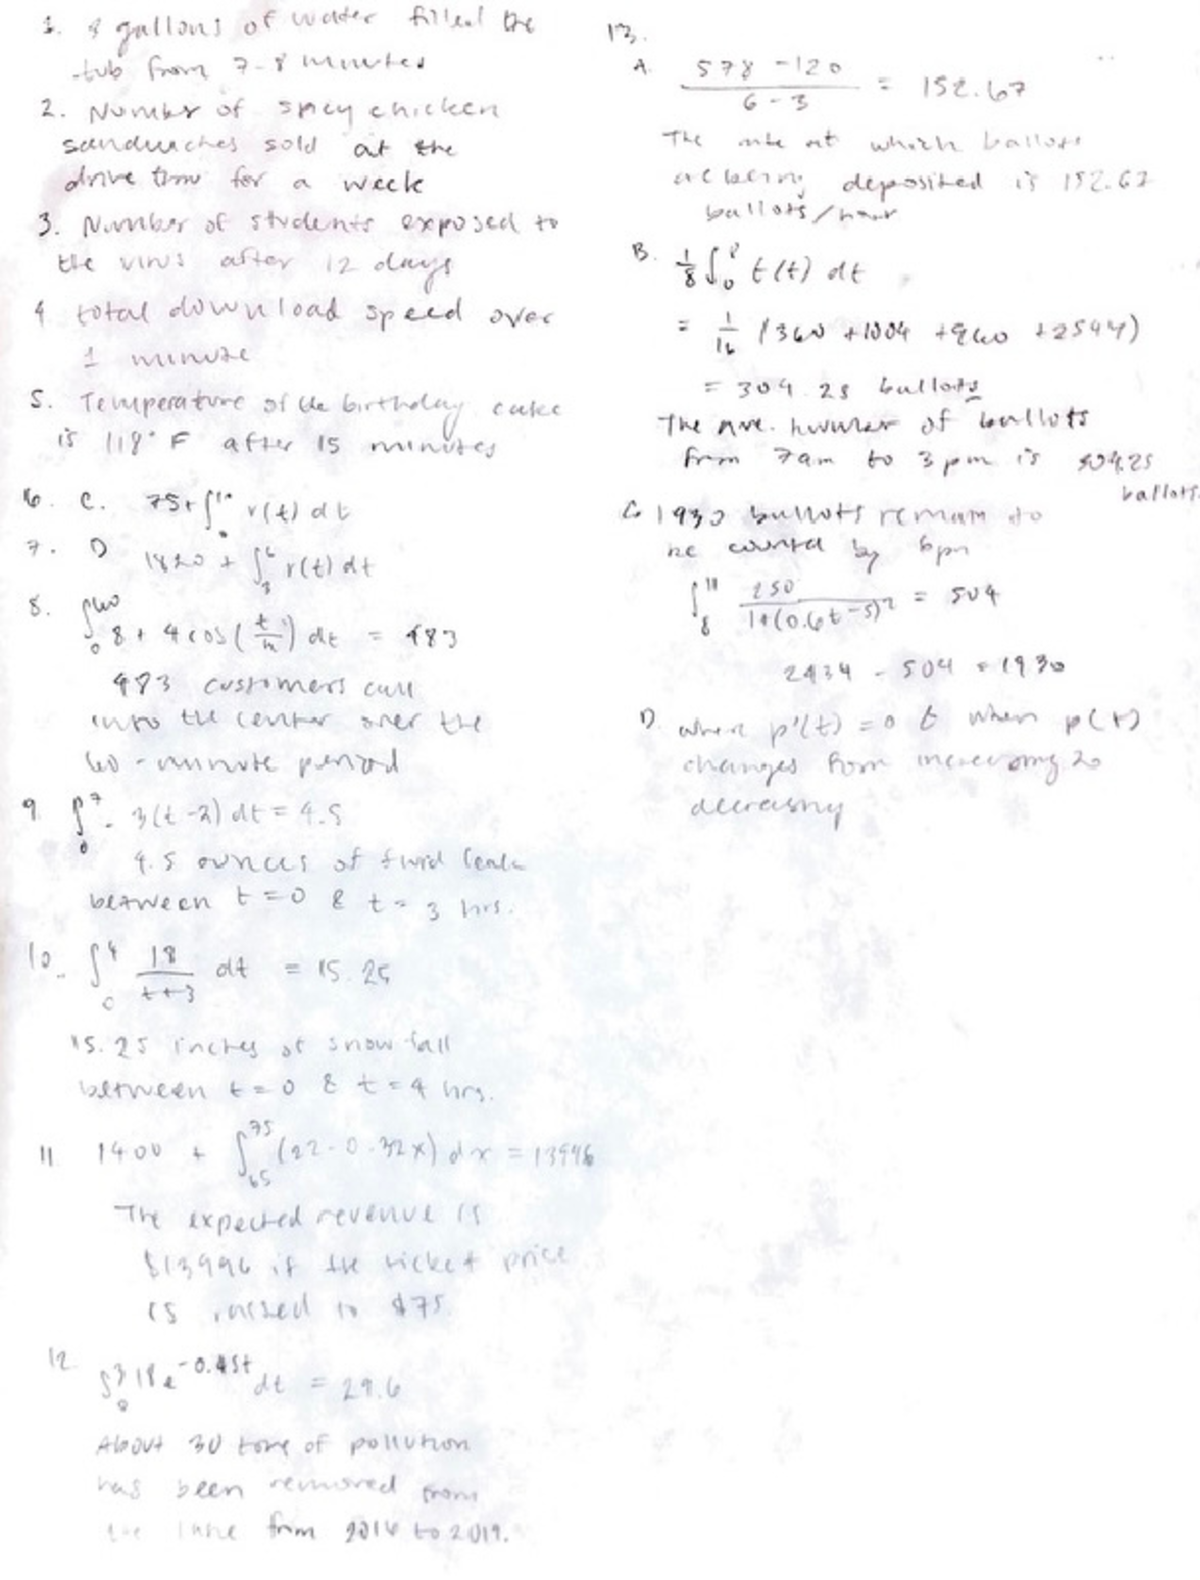 1. 8 gallons of water filled the
tub from 7-8 minutes
2. Number of spicy chicken
sandwiches sold at the
drive thru for a week
3. Number of students exposed to
the virus after 12 days
4. total download speed over
1 minute
5. Temperature of the birthday cake
is 118° F after 15 minutes
6. C. 75+∫ r(t) dt
7. D 1820 + ∫₃⁶ r(t) dt
8. ∫₀⁶⁰ 8 + 4 cos( ) dt = 483
483 customers call
into the center over the
60-minute period
9. 3(t-2) dt = 4.5
4.5 ounces of fluid leak
between t=0 & t= 3 hrs.
10. ∫₀⁴ 18/(t+3) dt = 15.25
15.25 inches of snow fall
between t=0 & t=4 hrs.
11. 1400 + ∫₆₅⁷⁵ (22-0.32x) dx = 13996
The expected revenue is
$13996 if the ticket price
is raised to $75.
12. 18e dt = 29.6
About 30 tons of pollution
has been removed from
the lake from 2016 to 2019.
13.
A. (578 - 120)/(6 - 3) = 152.67
The rate at which ballots
are being deposited is 152.67
ballots/hour
B. 1/8 ∫₀⁸ t(t) dt
= 1/16 (360 +1004 + +2544)
= 304.25 ballots
The ave. number of ballots
from 7am to 3pm is 304.25
ballots.
C. 1930 ballots remain to
be counted by 6pm
250/(1+(0.6t-5)²) = 504
2434 - 504 = 1930
D. when p'(t) = 0 & when p(t)
changes from increasing to
decreasing